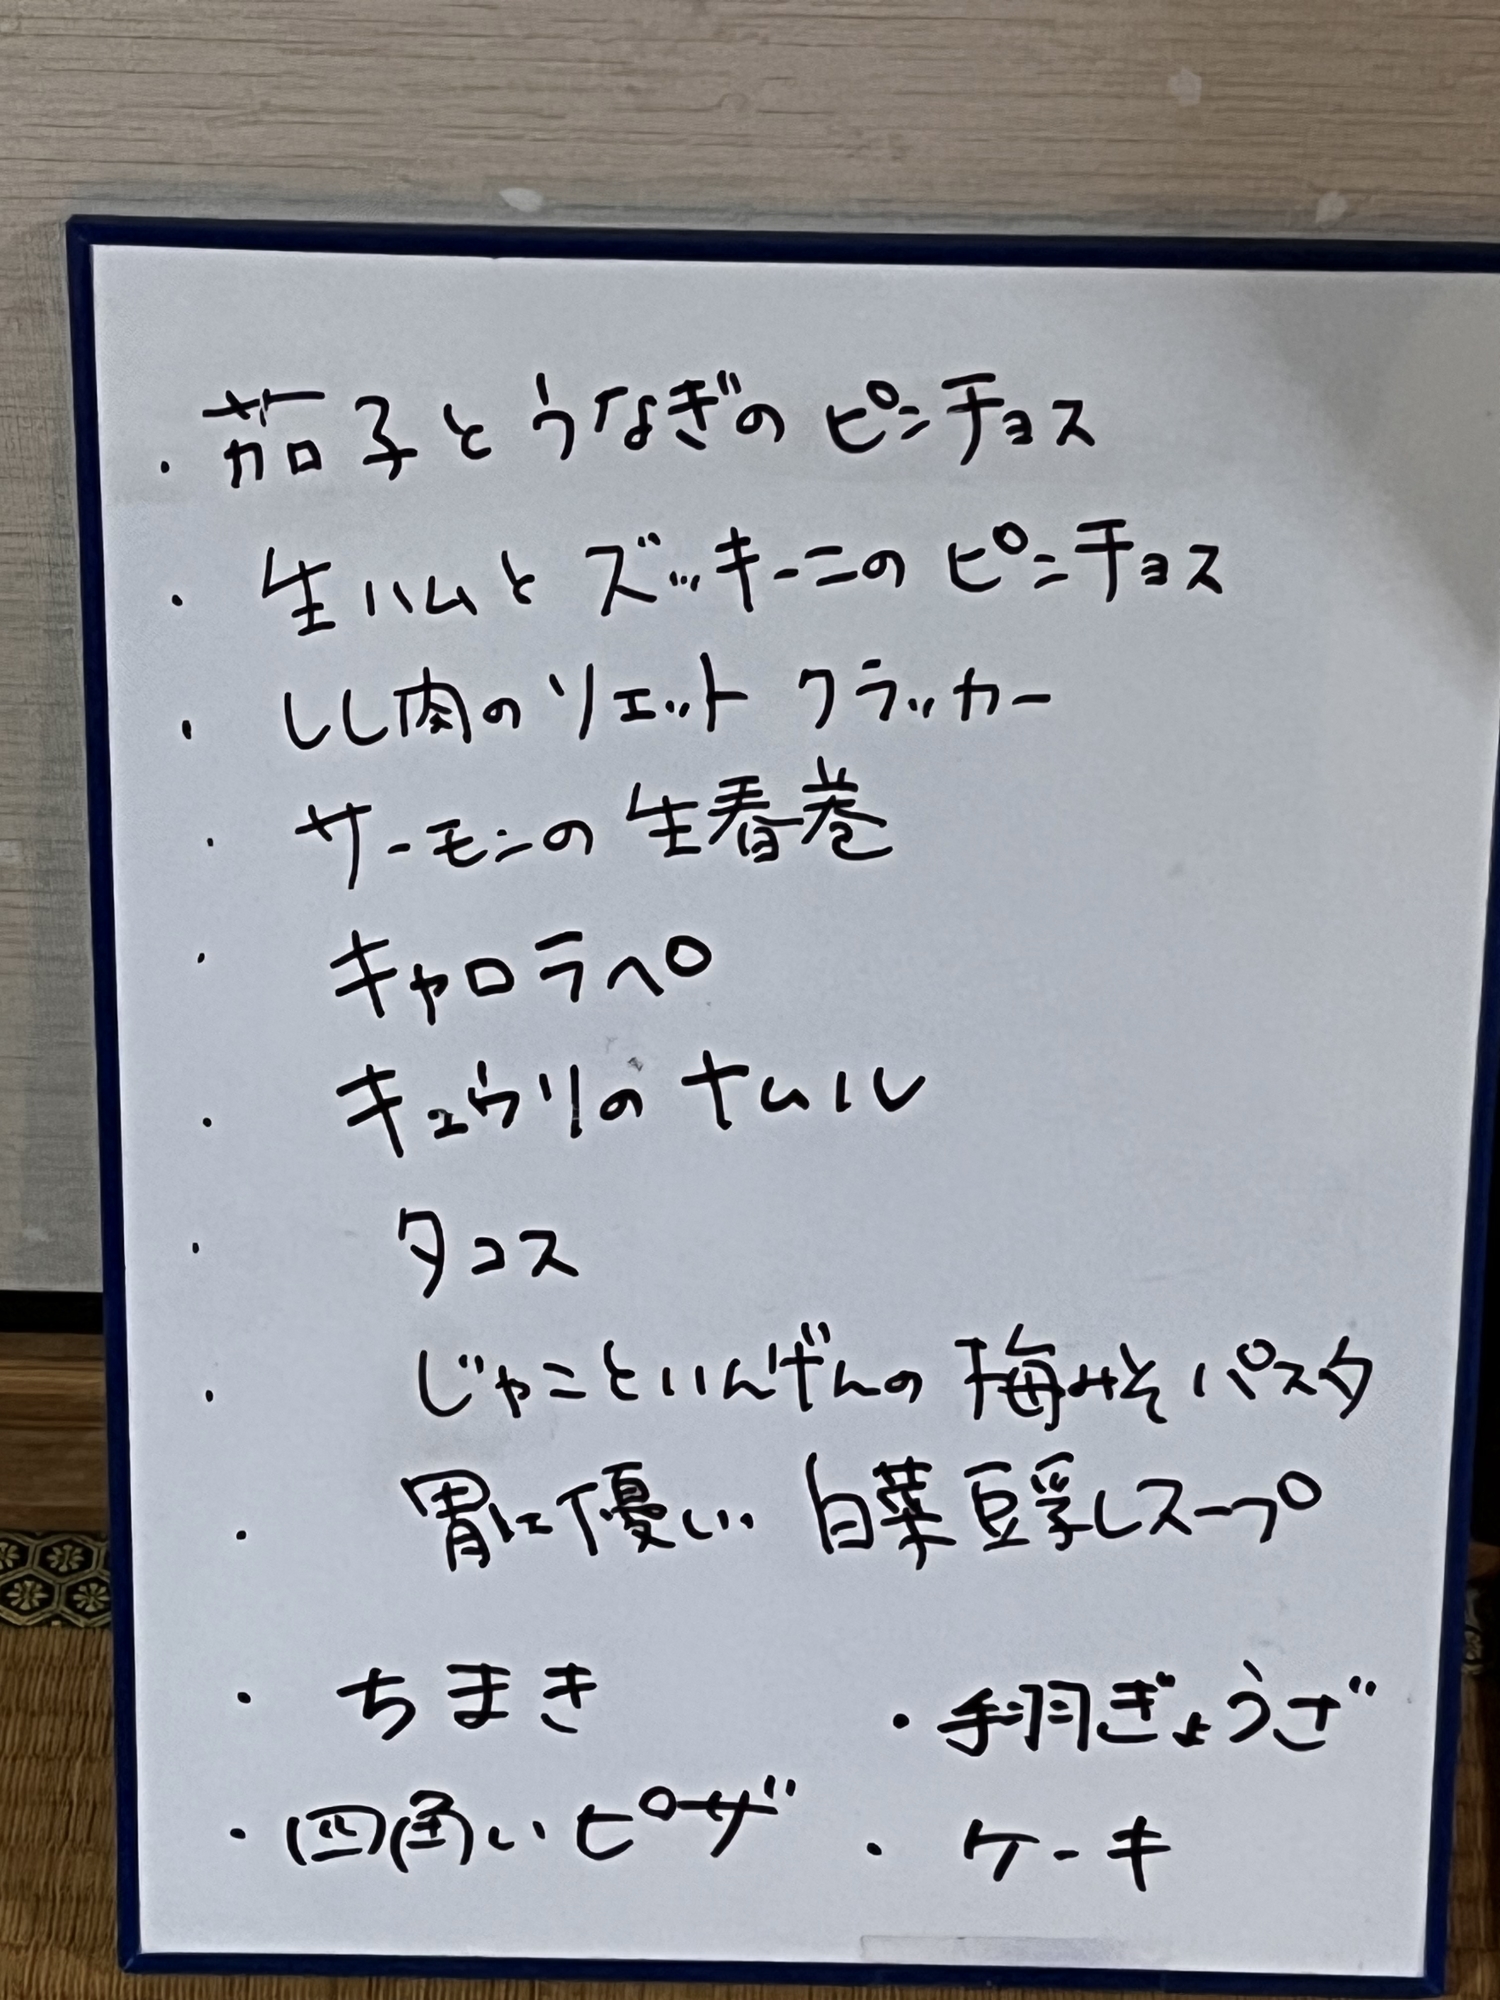 ・茄子とうなぎのピンチョス
・生ハムとズッキーニのピンチョス
・しし肉のリエット クラッカー
・サーモンの生春巻
・キャロラペ
・キュウリのナムル
・タコス
・じゃこといんげんの梅みそパスタ
・胃に優しい 白菜豆乳スープ
・ちまき ・手羽ぎょうざ
・四角いピザ ・ケーキ